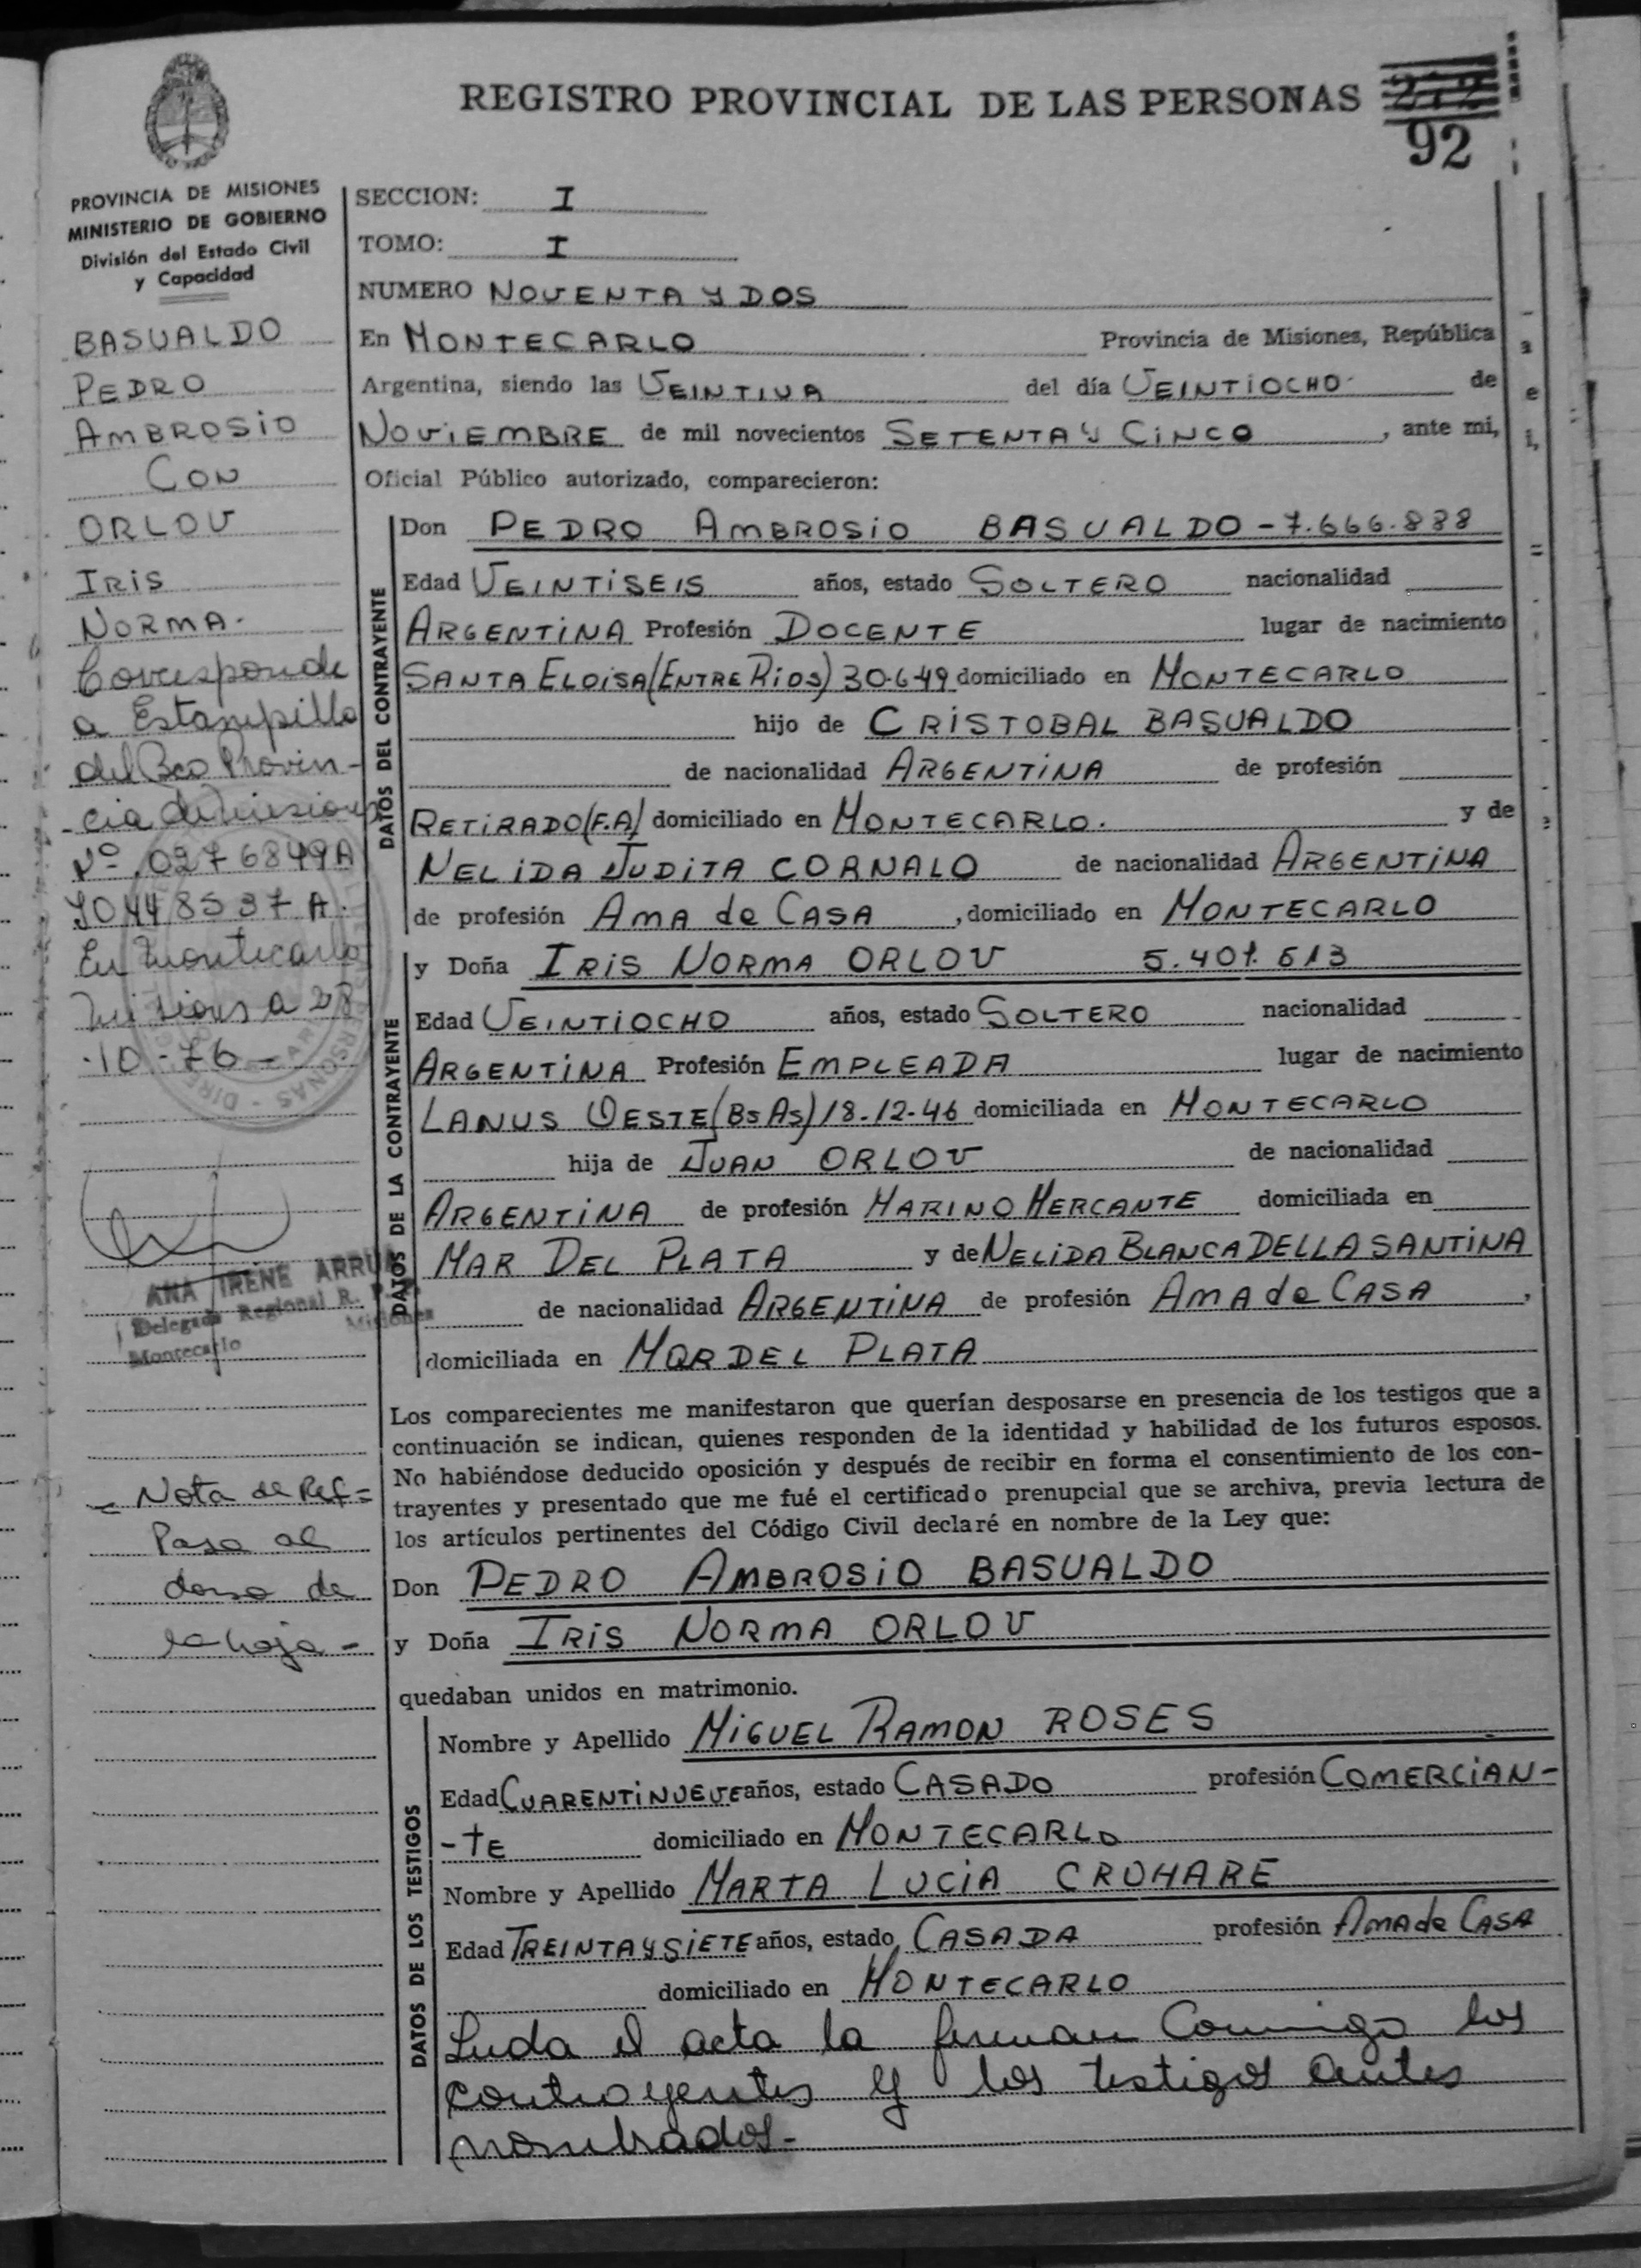 REGISTRO PROVINCIAL DE LAS PERSONAS
92
PROVINCIA DE MISIONES
MINISTERIO DE GOBIERNO
División del Estado Civil
y Capacidad
BASUALDO
PEDRO
AMBROSIO
CON
ORLOV
IRIS
NORMA.
Corresponde
a Estampilla
del Bco Provin-
-cia de Misiones
Nº 0276849A
y 0448537A.
En Montecarlo
Misiones a 28
-10-76-
ANA IRENE ARRUA
Delegada Regional R. P.
Misiones
Montecarlo
- Nota de Ref=
Pasa al
dorso de
la hoja -
SECCION: I
TOMO: I
NUMERO NOVENTA Y DOS
En MONTECARLO Provincia de Misiones, República
Argentina, siendo las VEINTIUA del día VEINTIOCHO de
NOVIEMBRE de mil novecientos SETENTA Y CINCO, ante mi,
Oficial Público autorizado, comparecieron:
DATOS DEL CONTRAYENTE
Don PEDRO AMBROSIO BASUALDO - 7.666.838
Edad VEINTISEIS años, estado SOLTERO nacionalidad
ARGENTINA Profesión DOCENTE lugar de nacimiento
SANTA ELOISA (ENTRE RIOS) 30-6-49 domiciliado en MONTECARLO
hijo de CRISTOBAL BASUALDO
de nacionalidad ARGENTINA de profesión
RETIRADO (F.A) domiciliado en MONTECARLO. y de
NELIDA JUDITA CORNALO de nacionalidad ARGENTINA
de profesión AMA de CASA, domiciliado en MONTECARLO
DATOS DE LA CONTRAYENTE
y Doña IRIS NORMA ORLOV 5.401.613
Edad VEINTIOCHO años, estado SOLTERO nacionalidad
ARGENTINA Profesión EMPLEADA lugar de nacimiento
LANUS OESTE (BS AS) 18-12-46 domiciliada en MONTECARLO
hija de JUAN ORLOV de nacionalidad
ARGENTINA de profesión MARINO MERCANTE domiciliada en
MAR DEL PLATA y de NELIDA BLANCA DELLA SANTINA
de nacionalidad ARGENTINA de profesión AMA de CASA,
domiciliada en MAR DEL PLATA
Los comparecientes me manifestaron que querían desposarse en presencia de los testigos que a
continuación se indican, quienes responden de la identidad y habilidad de los futuros esposos.
No habiéndose deducido oposición y después de recibir en forma el consentimiento de los con-
trayentes y presentado que me fué el certificado prenupcial que se archiva, previa lectura de
los artículos pertinentes del Código Civil declaré en nombre de la Ley que:
Don PEDRO AMBROSIO BASUALDO
y Doña IRIS NORMA ORLOV
quedaban unidos en matrimonio.
DATOS DE LOS TESTIGOS
Nombre y Apellido MIGUEL RAMON ROSES
Edad CUARENTINUEVE años, estado CASADO profesión COMERCIAN-
-TE domiciliado en MONTECARLO
Nombre y Apellido MARTA LUCIA CROHARE
Edad TREINTA Y SIETE años, estado CASADA profesión AMA de CASA
domiciliado en MONTECARLO
Leida el acta la firman Conmigo los
contrayentes y los testigos antes
nombrados.-